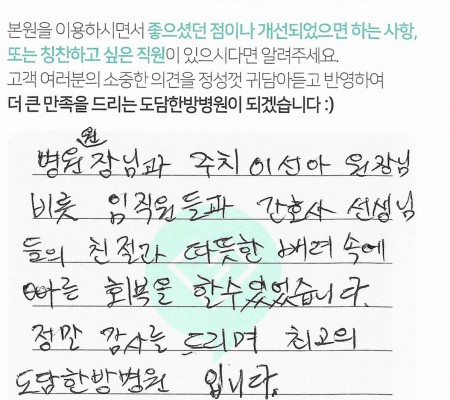 본원을 이용하시면서 좋으셨던 점이나 개선되었으면 하는 사항,
또는 칭찬하고 싶은 직원이 있으시다면 알려주세요.
고객 여러분의 소중한 의견을 정성껏 귀담아듣고 반영하여
더 큰 만족을 드리는 도담한방병원이 되겠습니다 :)
병원원장님과 주치 이선아 원장님
비롯 임직원들과 간호사 선생님
들의 친절과 따뜻한 배려 속에
빠른 회복을 할수 있었습니다.
정말 감사를 드리며 최고의
도담한방병원 입니다.